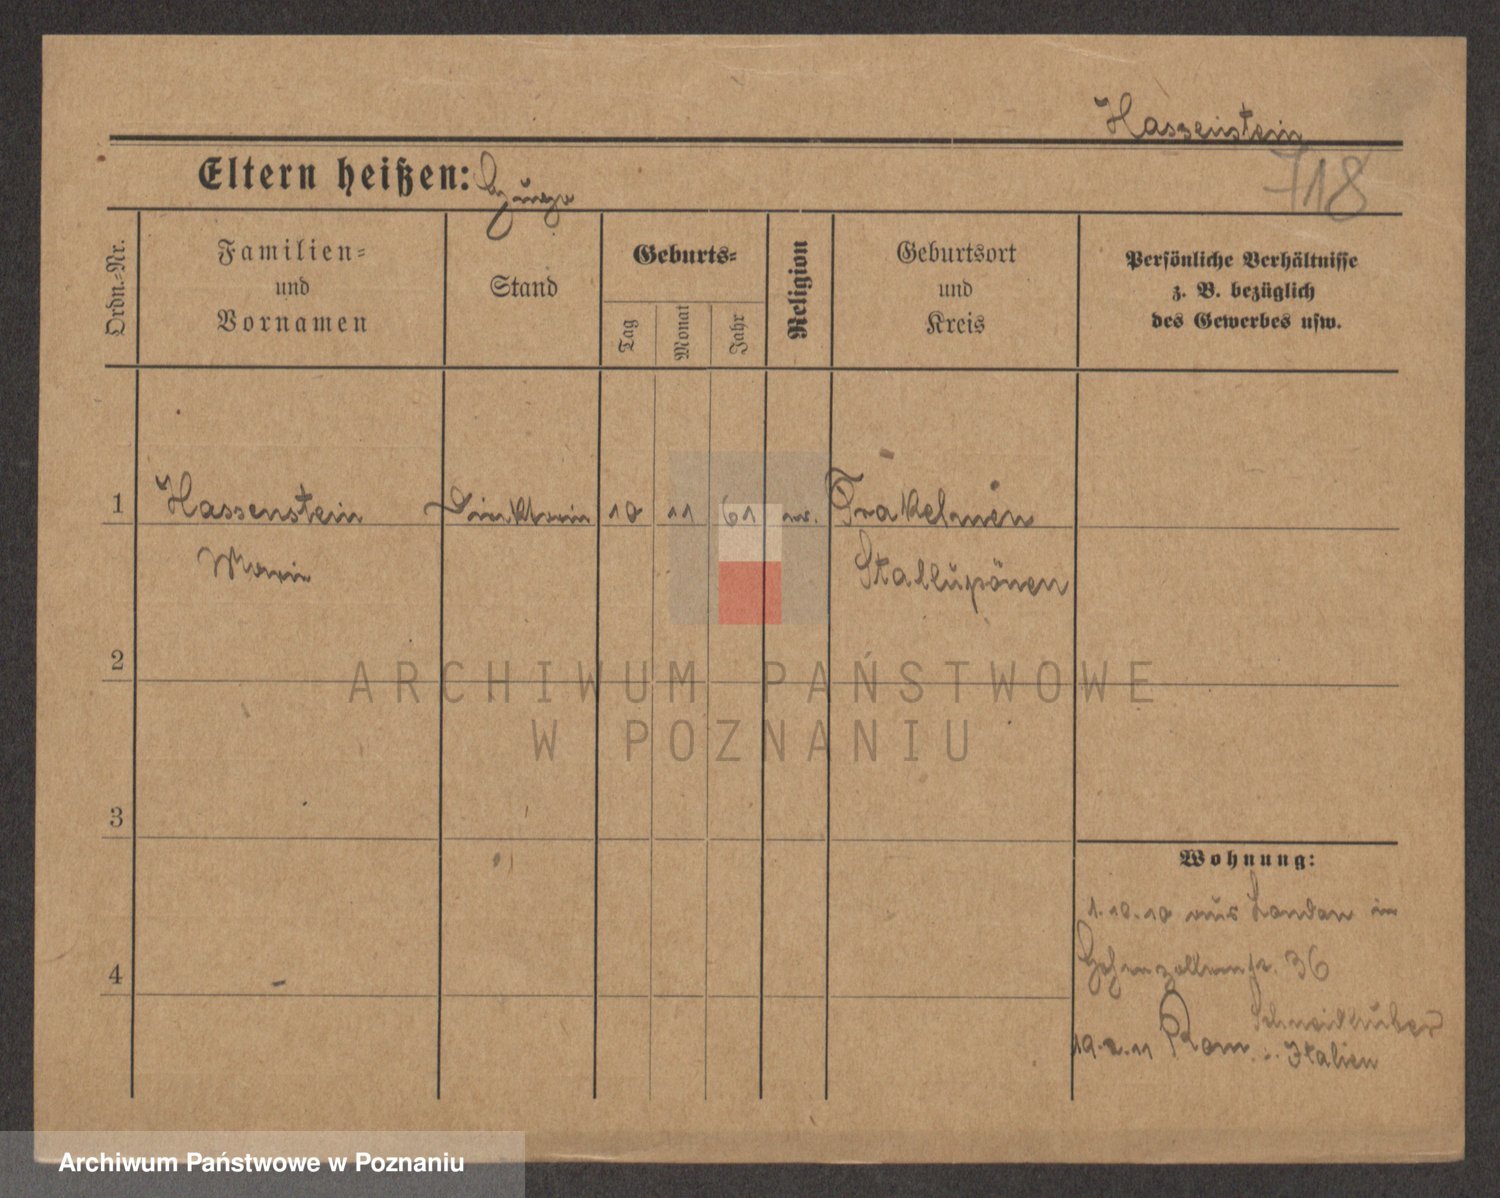 Hassenstein
Eltern heißen:
718
Ordn.-Nr.
Familien-
und
Vornamen
Stand
Geburts-
Tag
Monat
Jahr
Religion
Geburtsort
und
Kreis
Persönliche Verhältnisse
z. B. bezüglich
des Gewerbes usw.
1 Hassenstein 10 11 61 Trakehnen
Marie Stallupönen
2
ARCHIWUM PAŃSTWOWE
W POZNANIU
3
Wohnung:
1.10.10 aus Landau in
Hohenzollernstr. 36
4
19.2.11 Rom Italien
Archiwum Państwowe w Poznaniu